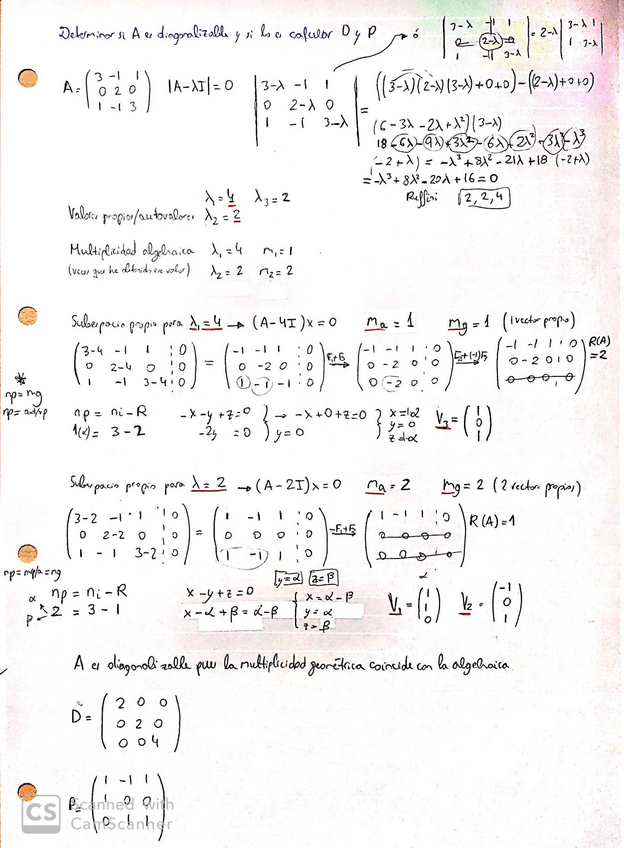 Determinar si A es diagonalizable y si lo es calcular D y P → ó |3-λ -1 1; 0 2-λ 0; 1 -1 3-λ| = 2-λ |3-λ 1; 1 3-λ|
A = (3 -1 1; 0 2 0; 1 -1 3) |A-λI| = 0 |3-λ -1 1; 0 2-λ 0; 1 -1 3-λ| =
((3-λ)(2-λ)(3-λ)+0+0) - ((2-λ)+0+0)
(6-3λ-2λ+λ²)(3-λ)
18-6λ-9λ+3λ²-6λ+2λ²+3λ²-λ³
(-2+λ) = -λ³+8λ²-21λ+18 (-2+λ)
= -λ³+8λ²-20λ+16=0
Ruffini 2, 2, 4
λ=4 λ₃=2
Valores propios/autovalores λ₂=2
Multiplicidad algebraica λ₁=4 m₁=1
λ₂=2 n₂=2
Subespacio propio para λ₁=4 → (A-4I)x=0 ma=1 mg=1 (1 vector propio)
(3-4 -1 1 0; 0 2-4 0 0; 1 -1 3-4 0) = (-1 -1 1 0; 0 -2 0 0; 1 -1 -1 0) F₁+F₃ → (-1 -1 1 0; 0 -2 0 0; 0 -2 0 0) → (-1 -1 1 0; 0 -2 0 0; 0 0 0 0) R(A) = 2
* np=mg
np = ni-R -x-y+z=0 → -x+0+z=0 x=1α V₃ = (1; 0; 1)
1(α) = 3-2 -2y =0 y=0 y=0 z=1α
Subespacio propio para λ=2 → (A-2I)x=0 ma=2 mg=2 (2 vector propios)
(3-2 -1 1 0; 0 2-2 0 0; 1 -1 3-2 0) = (1 -1 1 0; 0 0 0 0; 1 -1 1 0) -F₁+F₃ → (1 -1 1 0; 0 0 0 0; 0 0 0 0) R(A)=1
y=α z=β
α np = ni-R x-y+z=0 x=α-β V₁ = (1; 1; 0) V₂ = (-1; 0; 1)
β 2 = 3-1 x-α+β=α-β y=α
z=β
A es diagonalizable pues la multiplicidad geométrica coincide con la algebraica.
D = (2 0 0; 0 2 0; 0 0 4)
P = (1 -1 1; 1 0 0; 0 1 1)
CS Scanned with
CamScanner